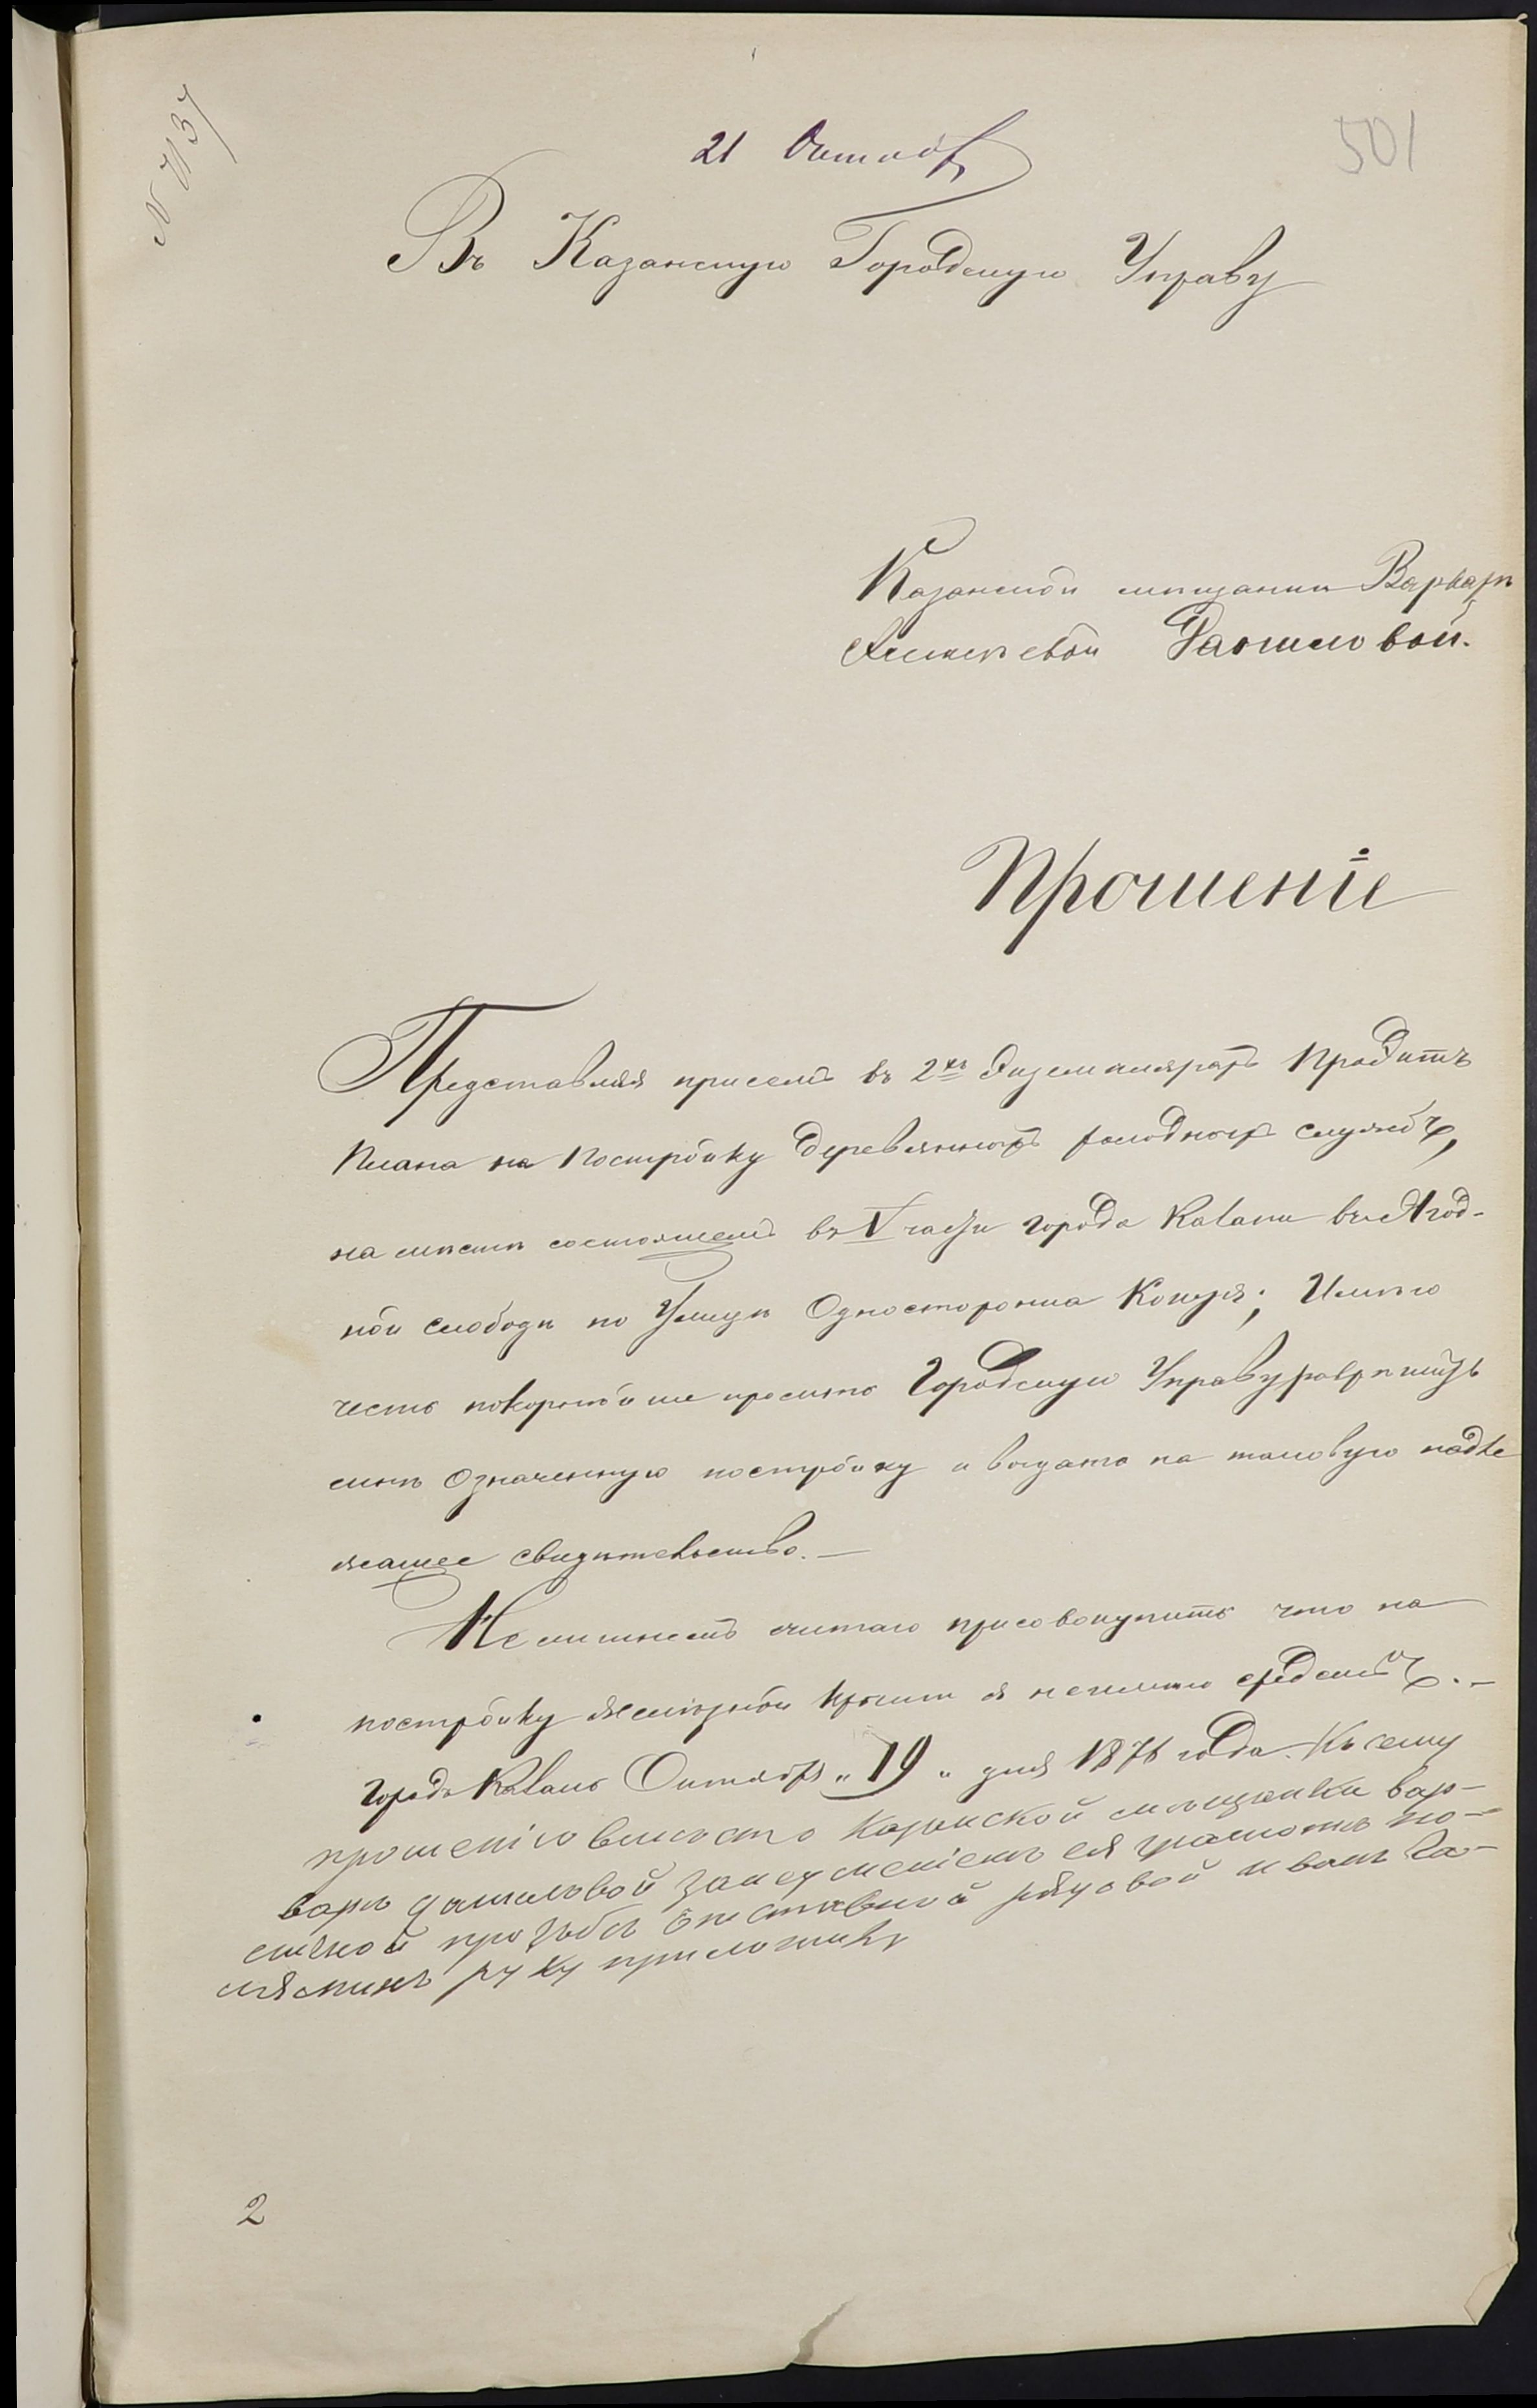 N 7137
21 Октября
501
Въ Казанскую Городскую Управу
Казанской мѣщанки Варвары
Алексѣевой Даниловой.
Прошеніе
Представляя присемъ въ 2хъ Экземплярахъ Проэктъ
плана на постройку деревянныхъ холодныхъ службъ,
на мѣстѣ состоящемъ въ V части города Казани въ Ягод-
ной слободѣ по Улицѣ Односторонка ; Имѣю
честь покорнѣйше просить Городскую Управу разрѣшить
мнѣ означенную постройку и выдать на таковую надле
жащее свидѣтельство.—
Не лишнемъ считаю присовокупить что на
постройку желѣзной крыши я неимѣю средствъ.—
Городъ Казань Октября „19„ дня 1876 года. Къ сему
прошенію вмѣсто Казанской мѣщанки Вар-
вары Даниловой занеумѣніемъ ея грамотѣ по-
личной прозьбѣ отставной рядовой Иванъ
руку приложилъ
2